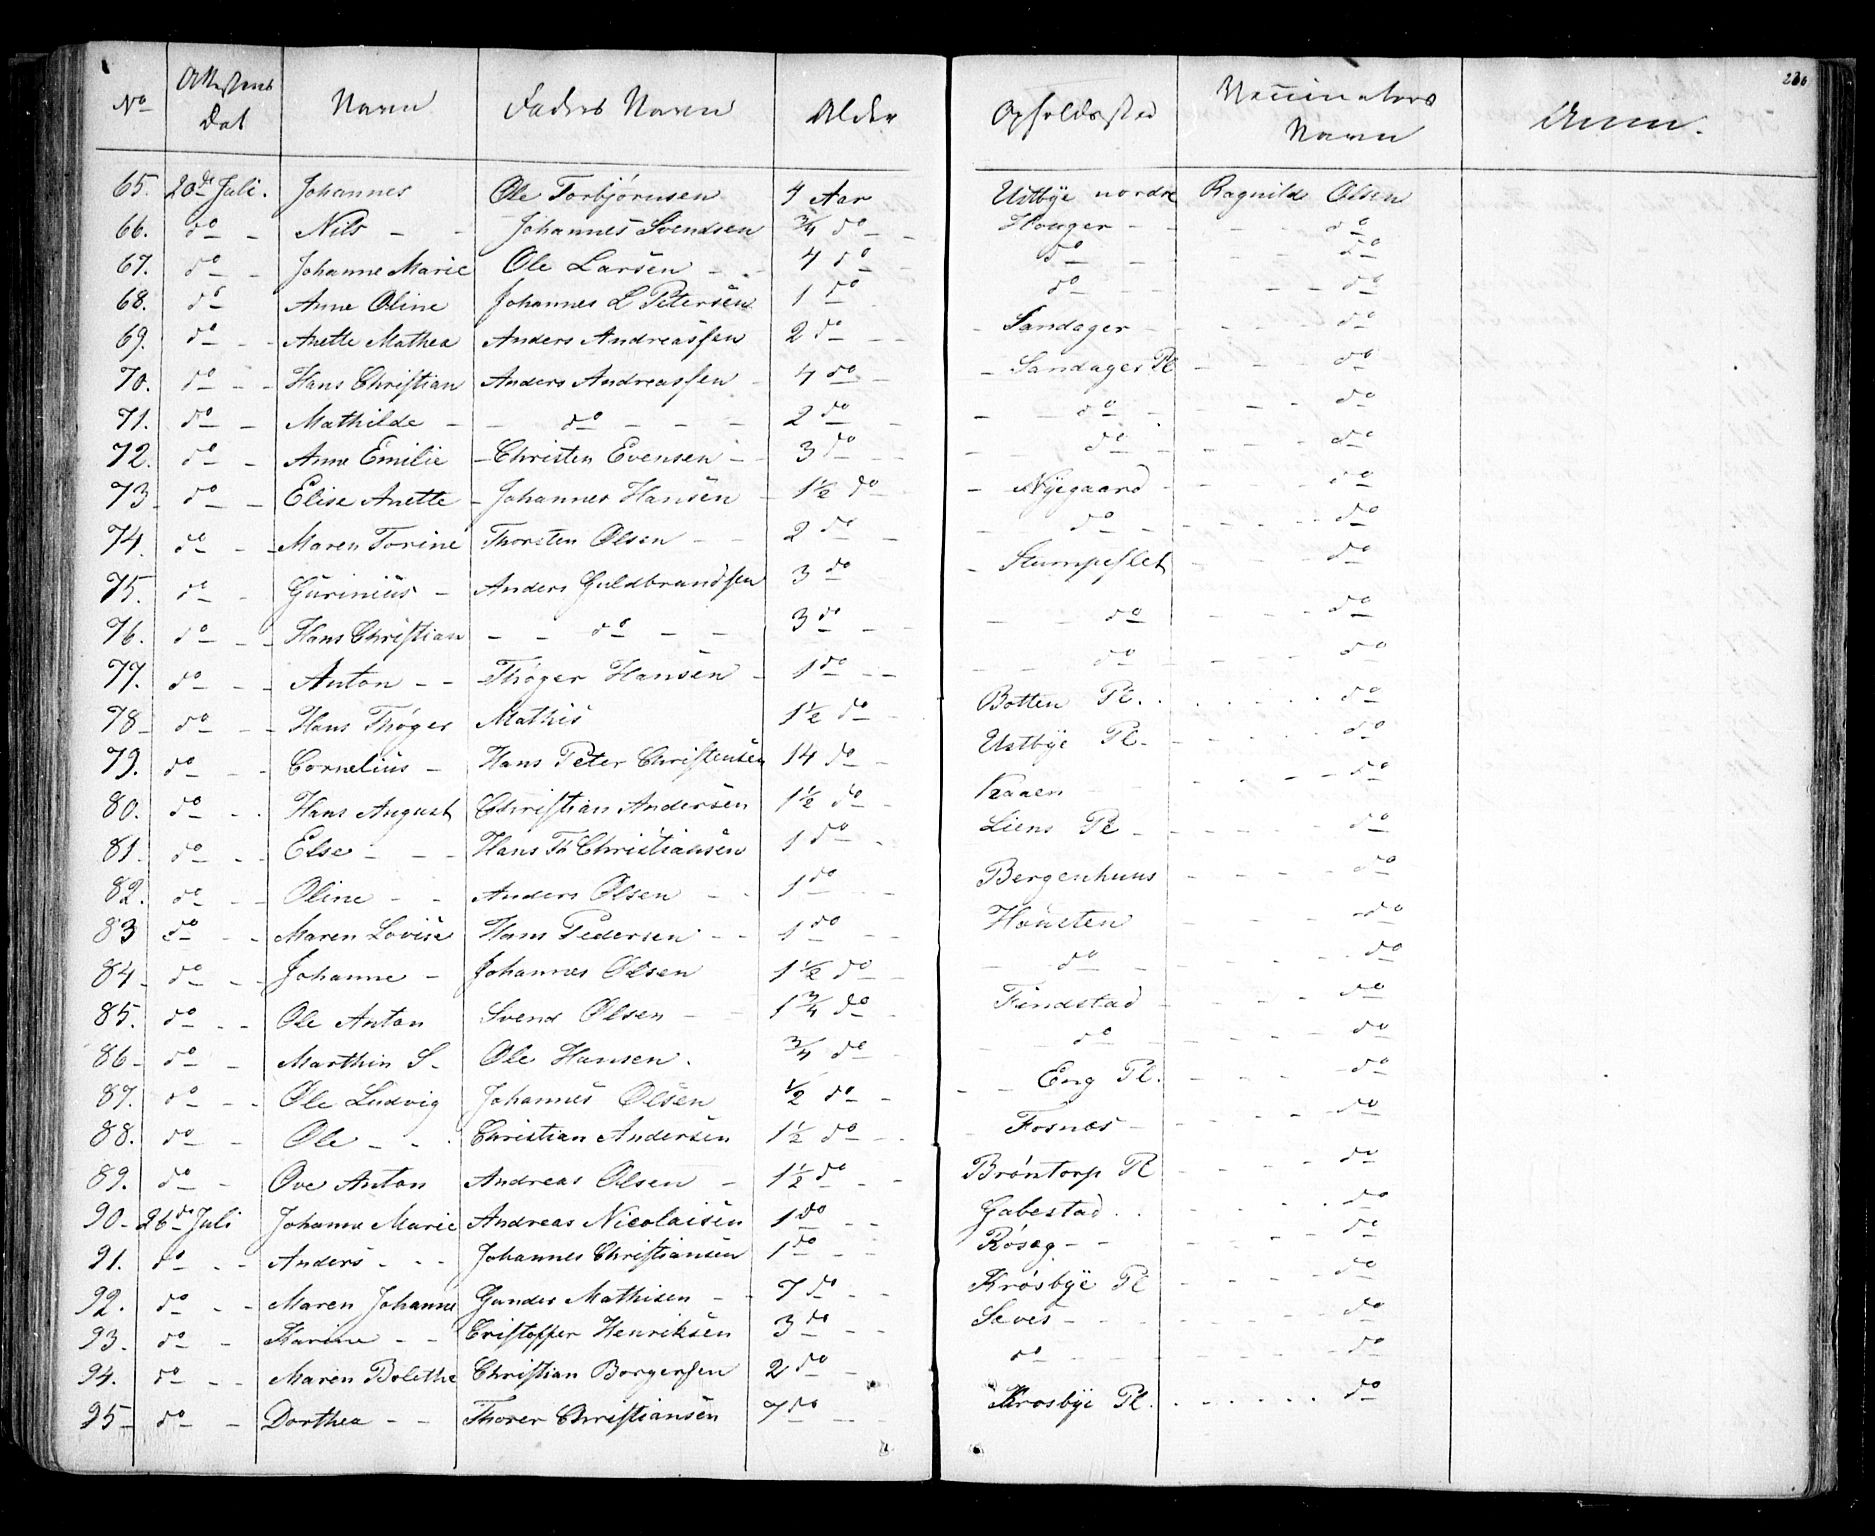 236
No Attestens Dat Navn Faders Navn Alder Opholdssted Vaccinators Navn Anm.
65. 20de Juli. Johannes Ole Torbjørnsen 4 Aar Ustbye nordre Ragnilds Olsen
66. do - Nils - - Johannes Svendsen 3/4 do - Houger - - do
67. do - Johanne Marie Ole Larsen - - 4 do - do - - do
68. do Anne Oline Johannes L Petersen 1 do do - - - - do
69. do - - Anette Mathea Anders Andreassen 2 do - - Sandager - - - do
70. do - - Hans Christian Anders Andreassen - 4 do - Sandager Pl - - do
71. do - Mathilde - - do - - - 2 do - do - - - do
72. do - Anne Emilie Christen Evensen - 3 do - - do - - - do
73 - do - Elise Anette Johannes Hansen - 1 1/2 do - Nyegaard - - do
74. do - - Maren Torine Thorsten Olsen - - 2 do - do - - - - do
75. do - Gurinius - Anders Guldbrandsen 3 do Stumpeslet - - do
76. do - - Hans Christian - - do - - 3 do - - do - - - do
77. do - - Anton - - Thøger Hansen - 1 do - - do - - - do
78 - do - - Hans Thøger Mathis 1 1/2 do - Botten Pl. - - do
79. do - - Cornelius - Hans Peter Christensen 14 do - Ustbye Pl. - - do
80. do - . Hans August Christian Andersen 1 1/2 do - Kaaen - - - do
81. do - - Else - - - Hans Fr Christiansen 1 do - Liens Pl - - - do
82. do - - Oline - - Anders Olsen - - 1 do - - Bergenhuus - - - do
83 do - - Maren Lovise Hans Pedersen - - 1 do - - - - do
84 - do - - Johanne - Johannes Olsen 1 1/2 do - do - - - do
85. do - - Ole Anton Svend Olsen - 1 3/4 do - Findstad - - - do
86 - do - Marthin S. Ole Hansen. 3/4 do do - - - do
87. do - - Ole Ludvig Johannes Olsen 1/2 do - Eng Pl. - - - do
88. do - Ole - . Christian Andersen 1 1/2 do - - Fosnæs - - - do
89. do - Ove Anton Andreas Olsen - 1 1/2 do - - Brøntorp Pl - - - do
90 - 26de Juli Johanne Marie Andreas Nicolaisen 1 do - - Gabestad . . - - do
91. do - - Anders - - - Johannes Christiansen 1 do - - Røseg - - - do
92. do - - Maren Johanne Gunder Mathisen - - 7 do - - Krøsbye Pl - - - do
93. do - Karine - - Cristoffer Henriksen 3 do - - Seves - - - do
94. do - - Maren Bolethe Christian Borgersen 2 do - do - - - do
95 - do - Dorthea - - Thorer Christiansen 7 do - - Krosbye Pl. . . . . . do